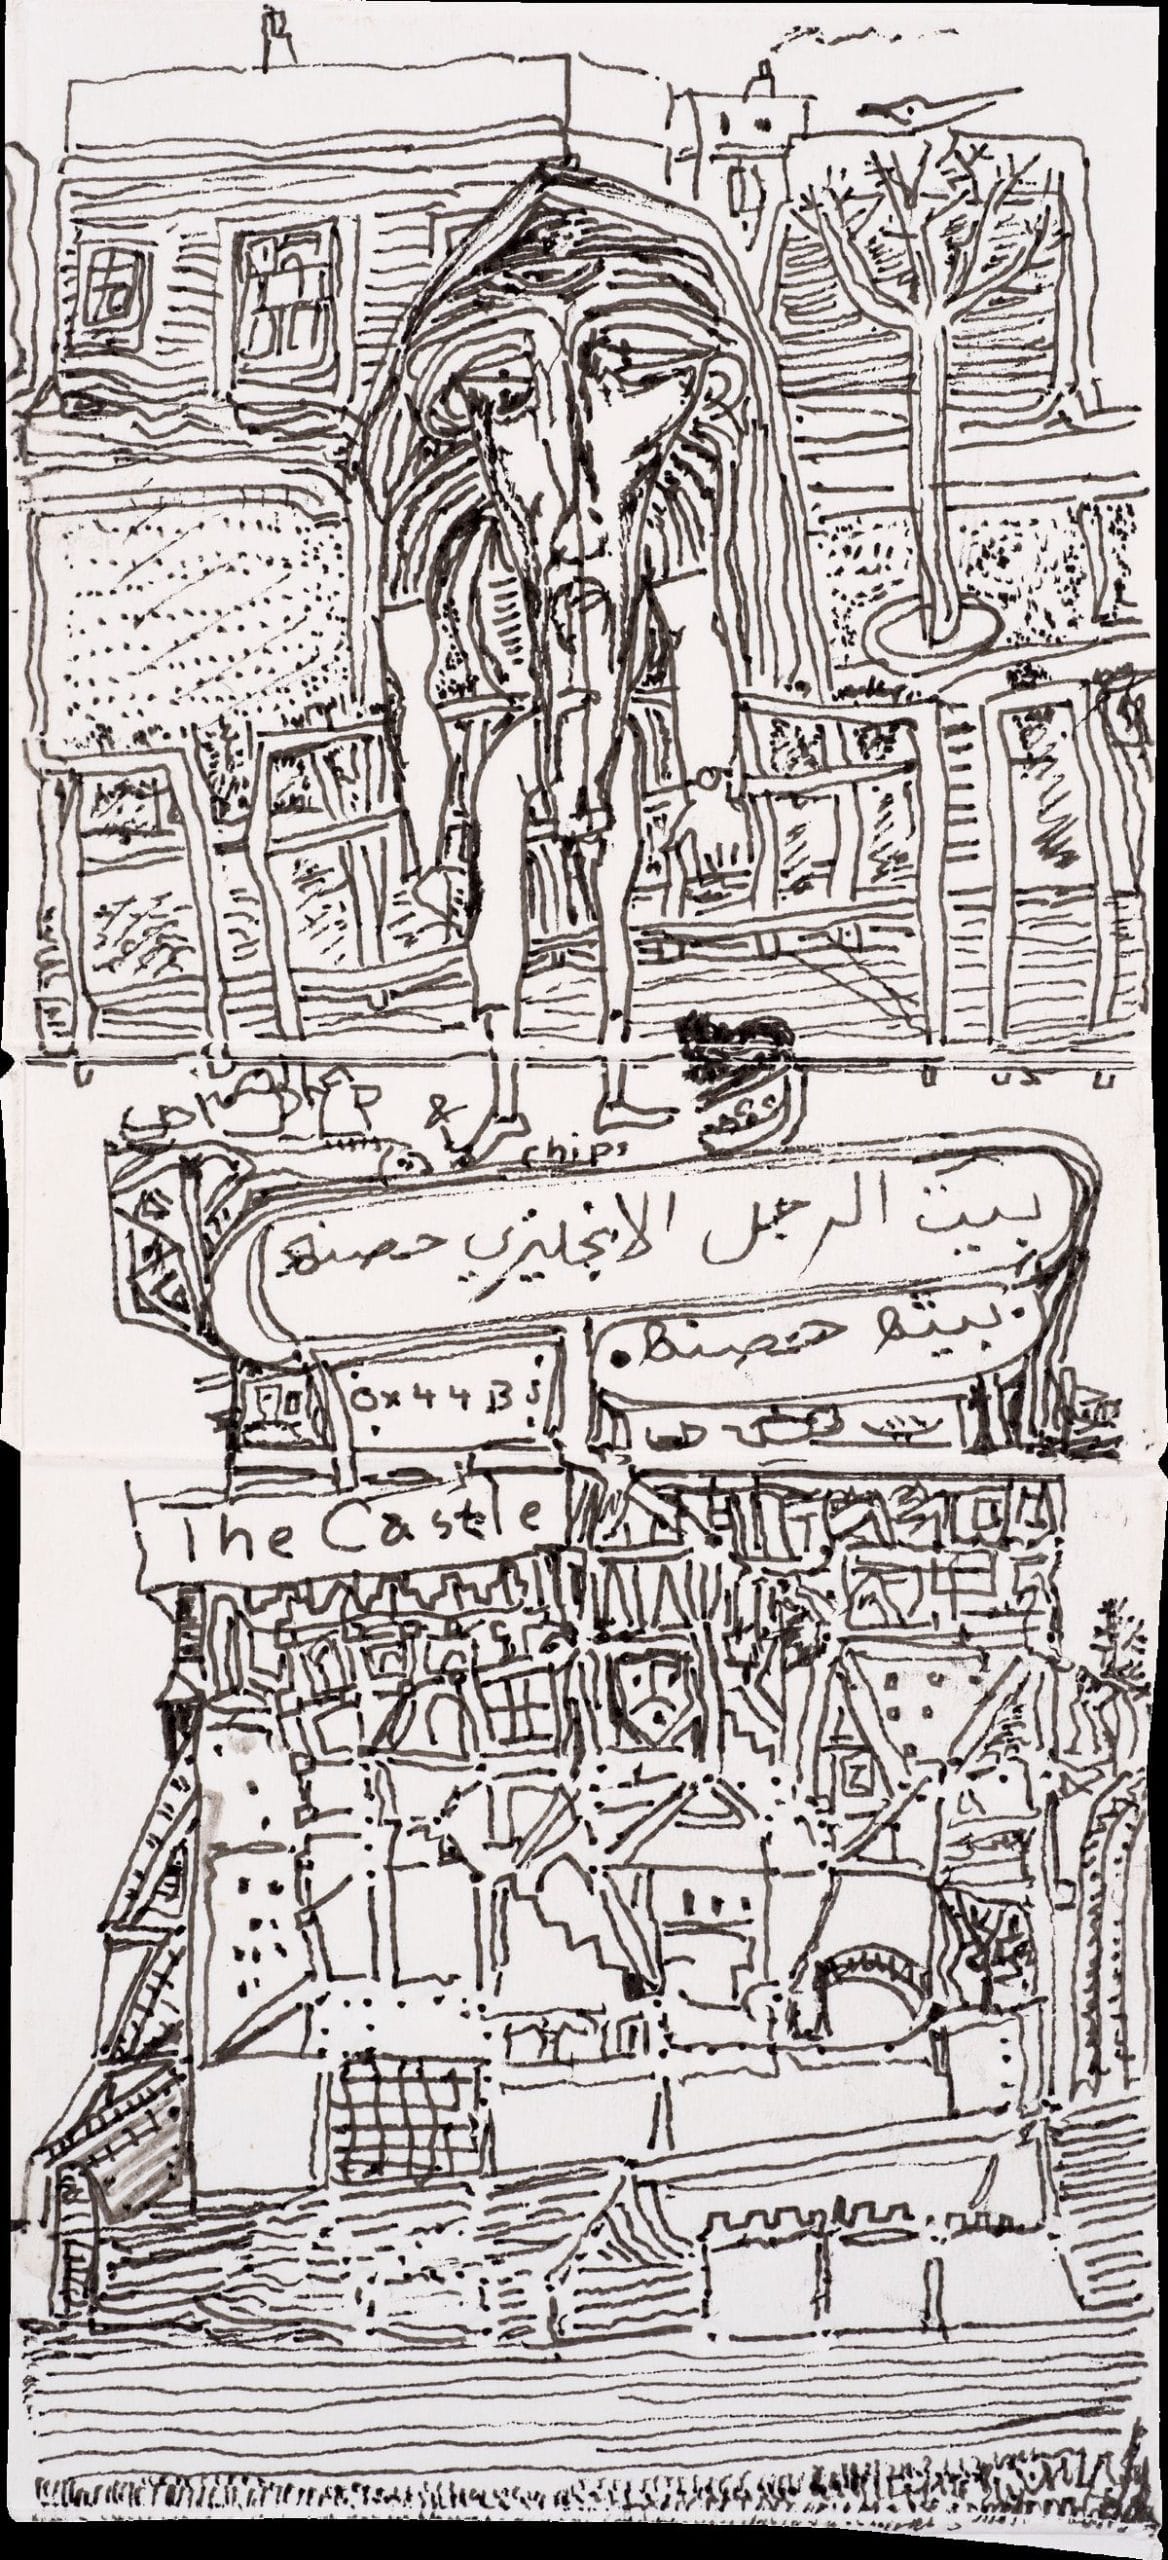 &
chips
بيت الرجل الانجليزي حصنه
بيته حصنه
0x44 B
The Castle